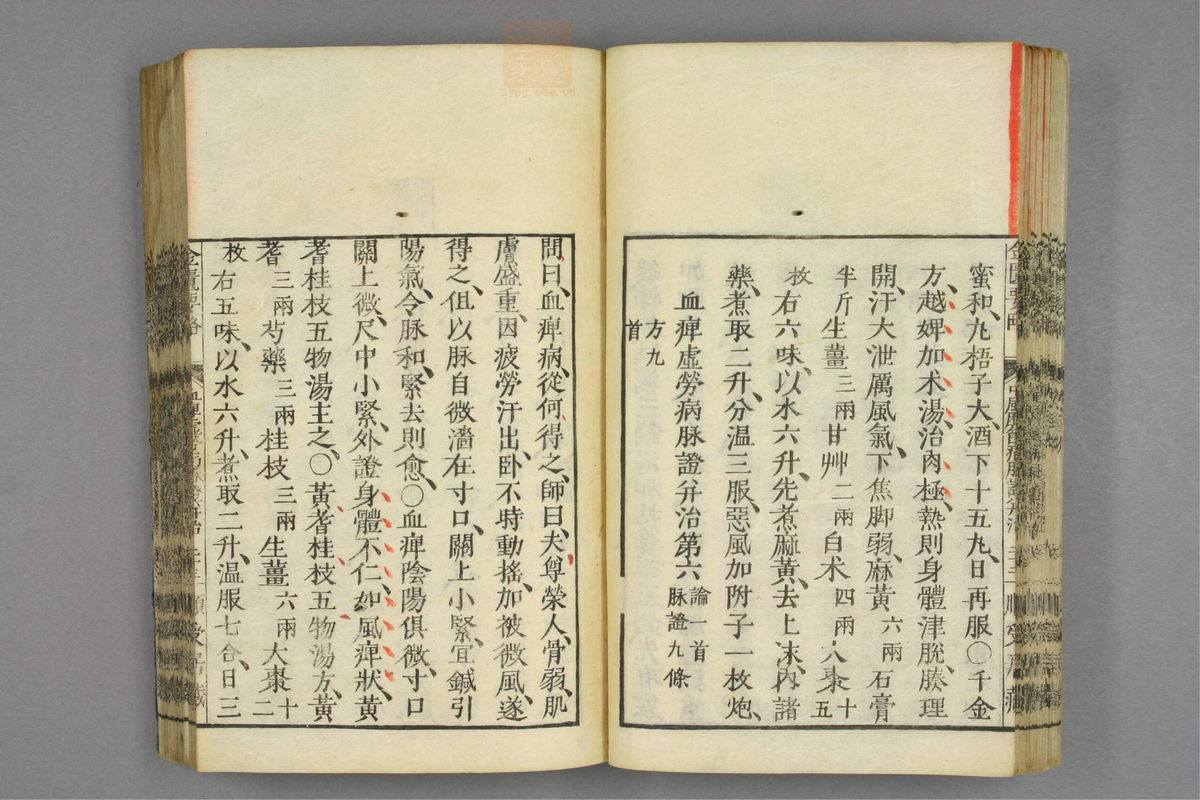 蜜和丸梧子大酒下十五丸日再服〇千金
方越婢加朮湯治肉極熱則身體津脫腠理
開汗大泄厲風氣下焦脚弱麻黃六兩石膏
半斤生薑三兩甘艸二兩白朮四兩大棗十五
枚右六味以水六升先煮麻黃去上沫內諸
藥煮取二升分溫三服惡風加附子一枚炮
血痺虛勞病脉證并治第六論一首脉證九條
方九首
問曰血痺病從何得之師曰夫尊榮人骨弱肌
膚盛重因疲勞汗出臥不時動搖加被微風遂
得之但以脉自微濇在寸口關上小緊宜鍼引
陽氣令脉和緊去則愈〇血痺陰陽俱微寸口
關上微尺中小緊外證身體不仁如風痺狀黃
耆桂枝五物湯主之〇黃耆桂枝五物湯方黃
耆三兩芍藥三兩桂枝三兩生薑六兩大棗十二
枚右五味以水六升煮取二升溫服七合日三
金匱要略